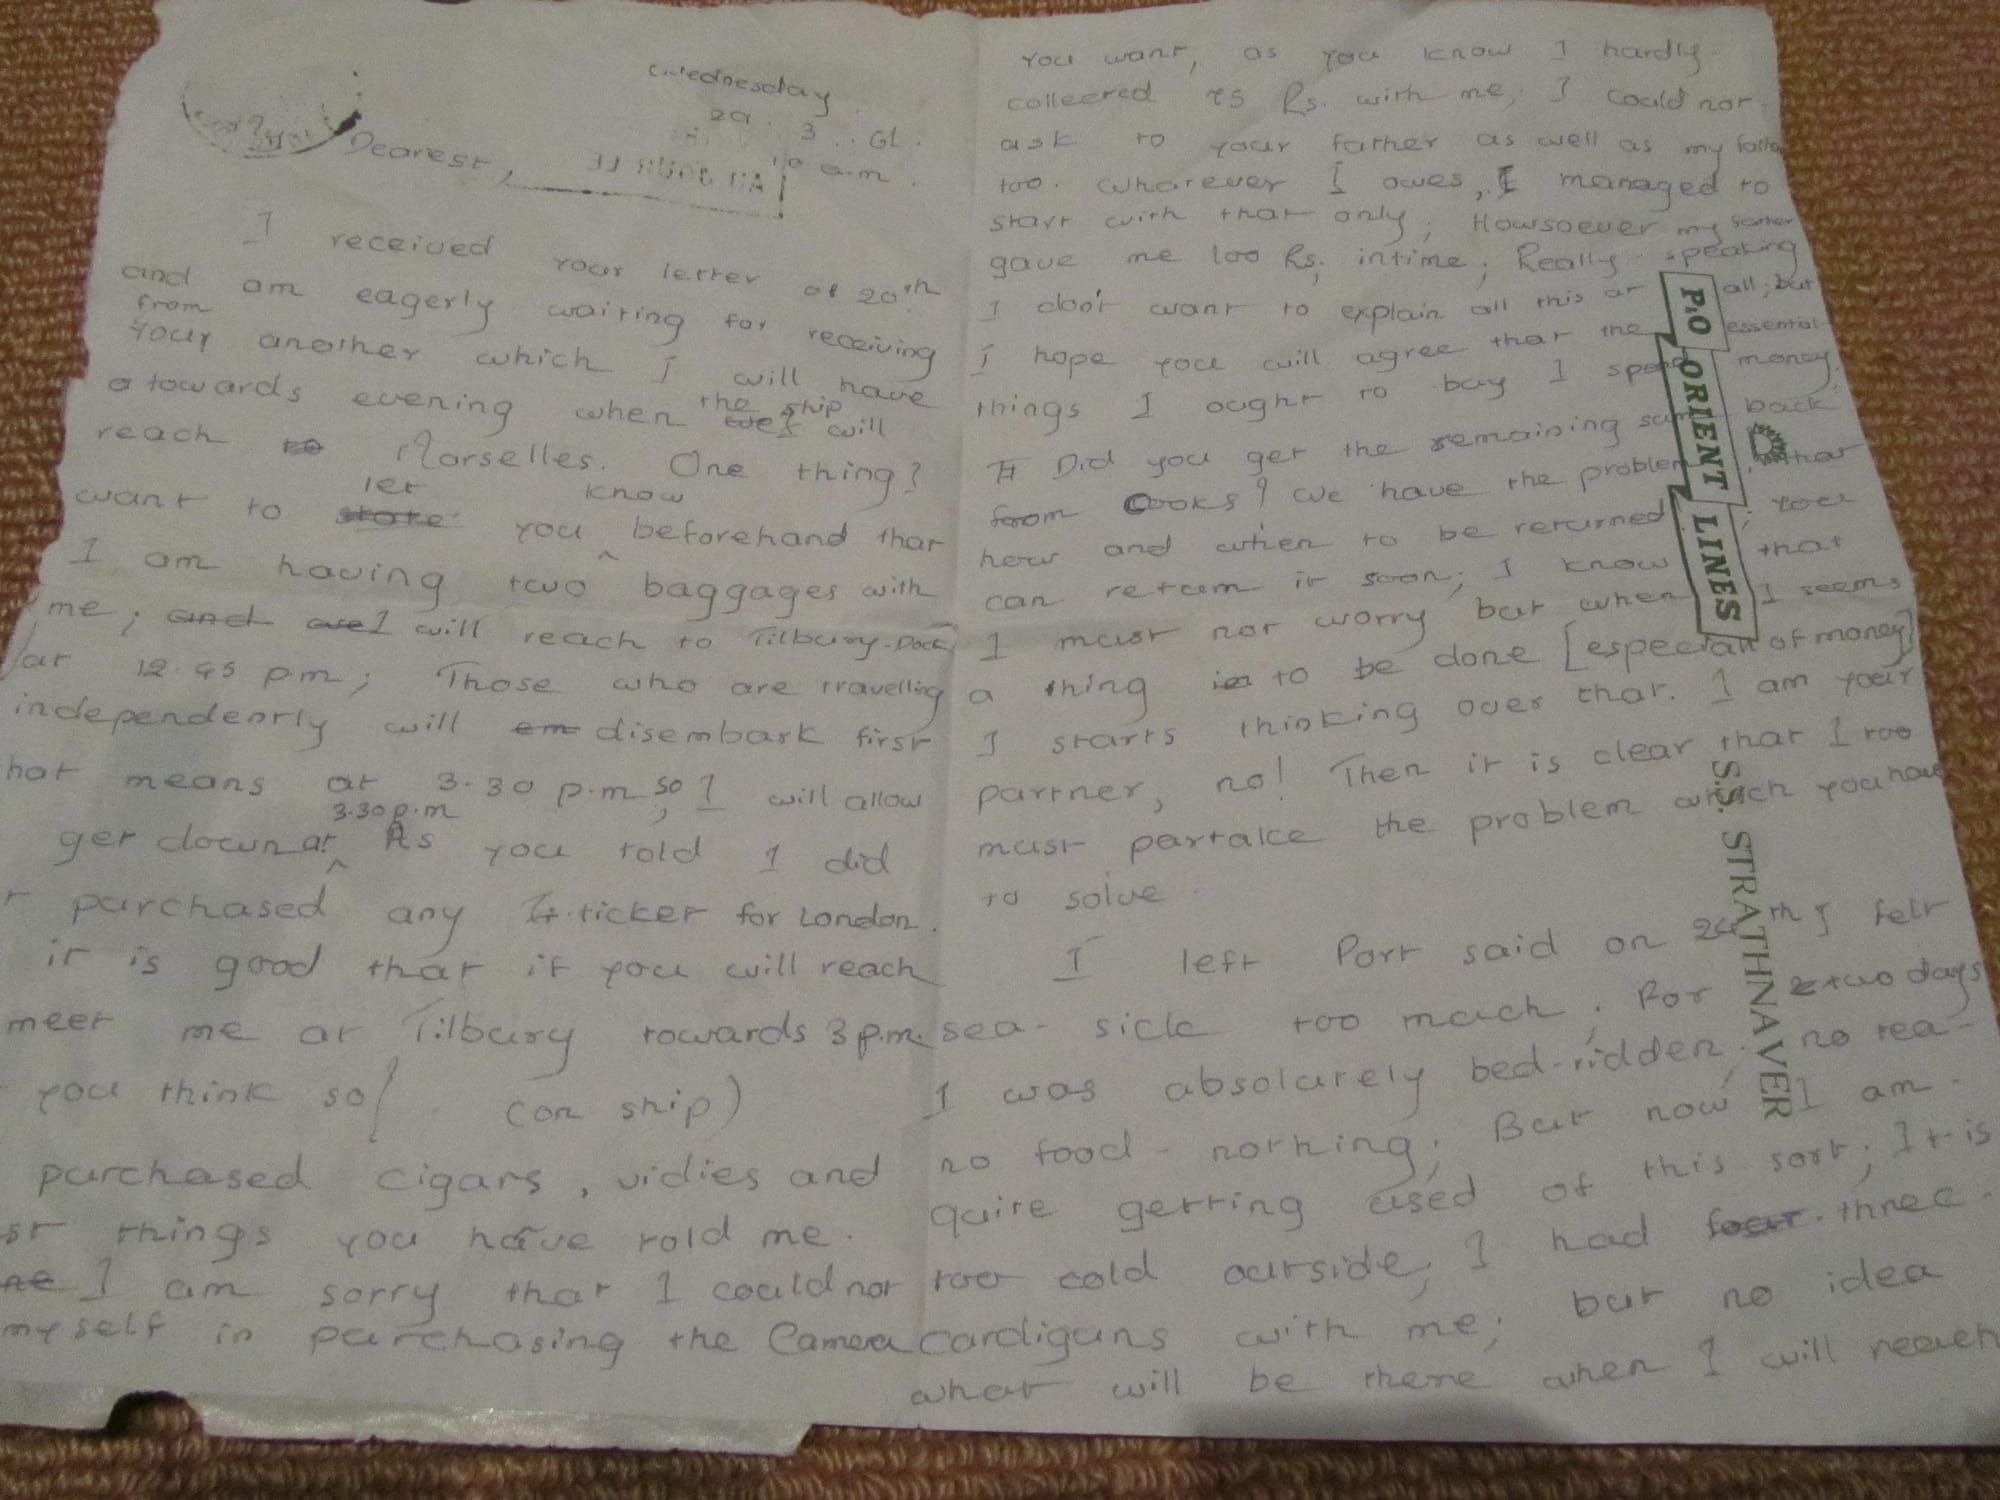 Wednesday
29. 3. 61.
10 a.m.
Dearest,
I received your letter of 20th
and am eagerly waiting for receiving
from
your another which I will have
towards evening when the ship will
reach to Marselles. One thing?
want to state let you know beforehand that
I am having two baggages with
me; and we I will reach to Tilbury-Dock
at 12.45 p.m; Those who are travelling
independently will em disembark first
hat means at 3.30 p.m; so I will allow
get down at 3.30 p.m As you told I did
t purchased any ticket for London.
it is good that if you will reach
meet me at Tilbury towards 3 p.m.
you think so! (on ship)
purchased cigars, vidies and
st things you have told me.
I am sorry that I could not
myself in purchasing the Camera
you want, as you know I hardly
colleered 25 Rs. with me, I could not
ask to your father as well as my father
too. Whatever I owes, I managed to
start with that only; Howsoever my father
gave me 100 Rs. intime; Really speaking
I don't want to explain all this at all; but
I hope you will agree that the essential-
things I ought to buy I money.
Did you get the remaining sum back
from Cooks? We have the problem that
how and when to be returned; you
can return it soon; I know that
I must not worry but when I seems
a thing is to be done [especially of money]
I starts thinking over that. I am your
partner, no! Then it is clear that I too
must partake the problem which you have
to solve.
I left Port said on 24th I felt
sea-sick too much; For 2 two days
I was absolutely bed-ridden; no tea-
no food - nothing; But now I am
quite getting used of this sort; It is
too cold outside; I had four three
cardigans with me; but no idea
what will be there when I will reach
P.&O ORIENT LINES
S.S. STRATHNAVER